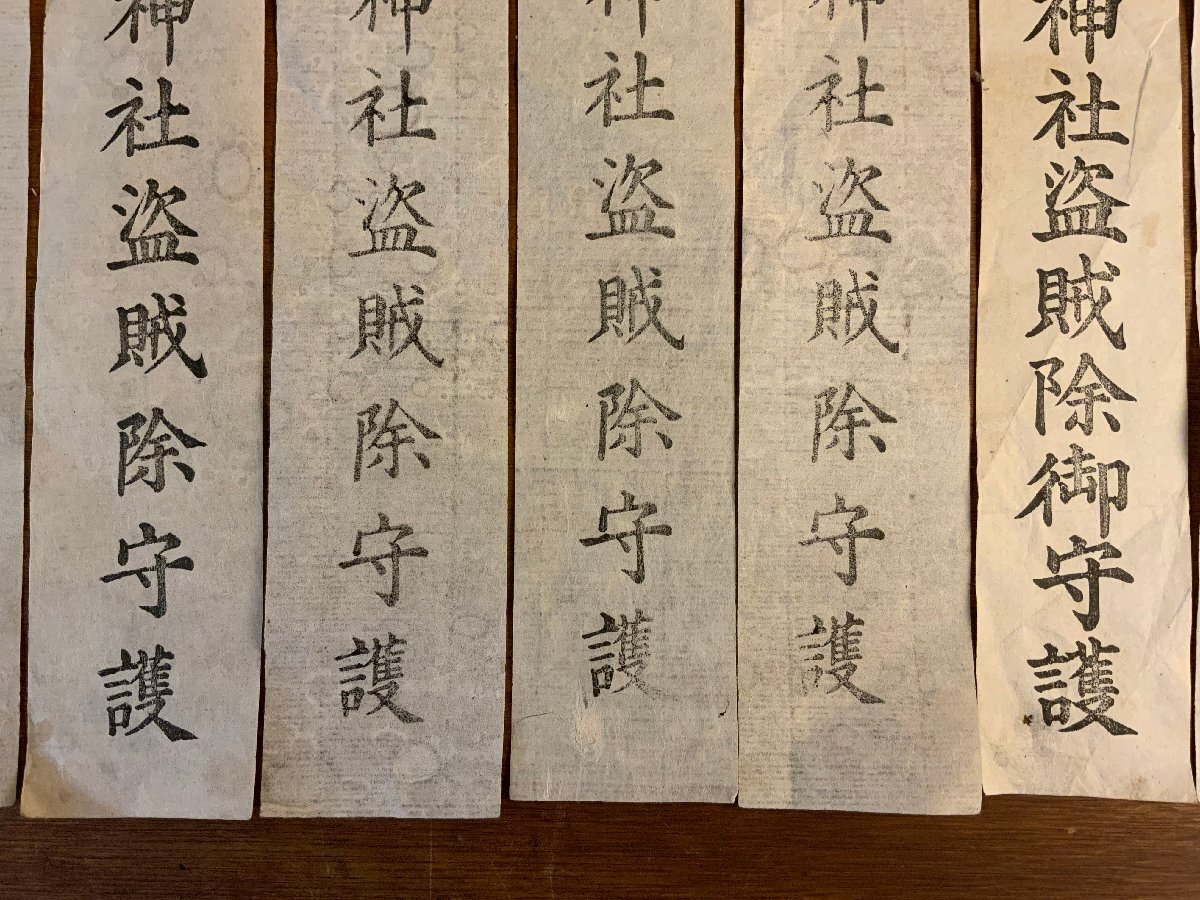 神社盗賊除御守護
神社盗賊除守護
神社盗賊除守護
神社盗賊除守護
神社盗賊除守護